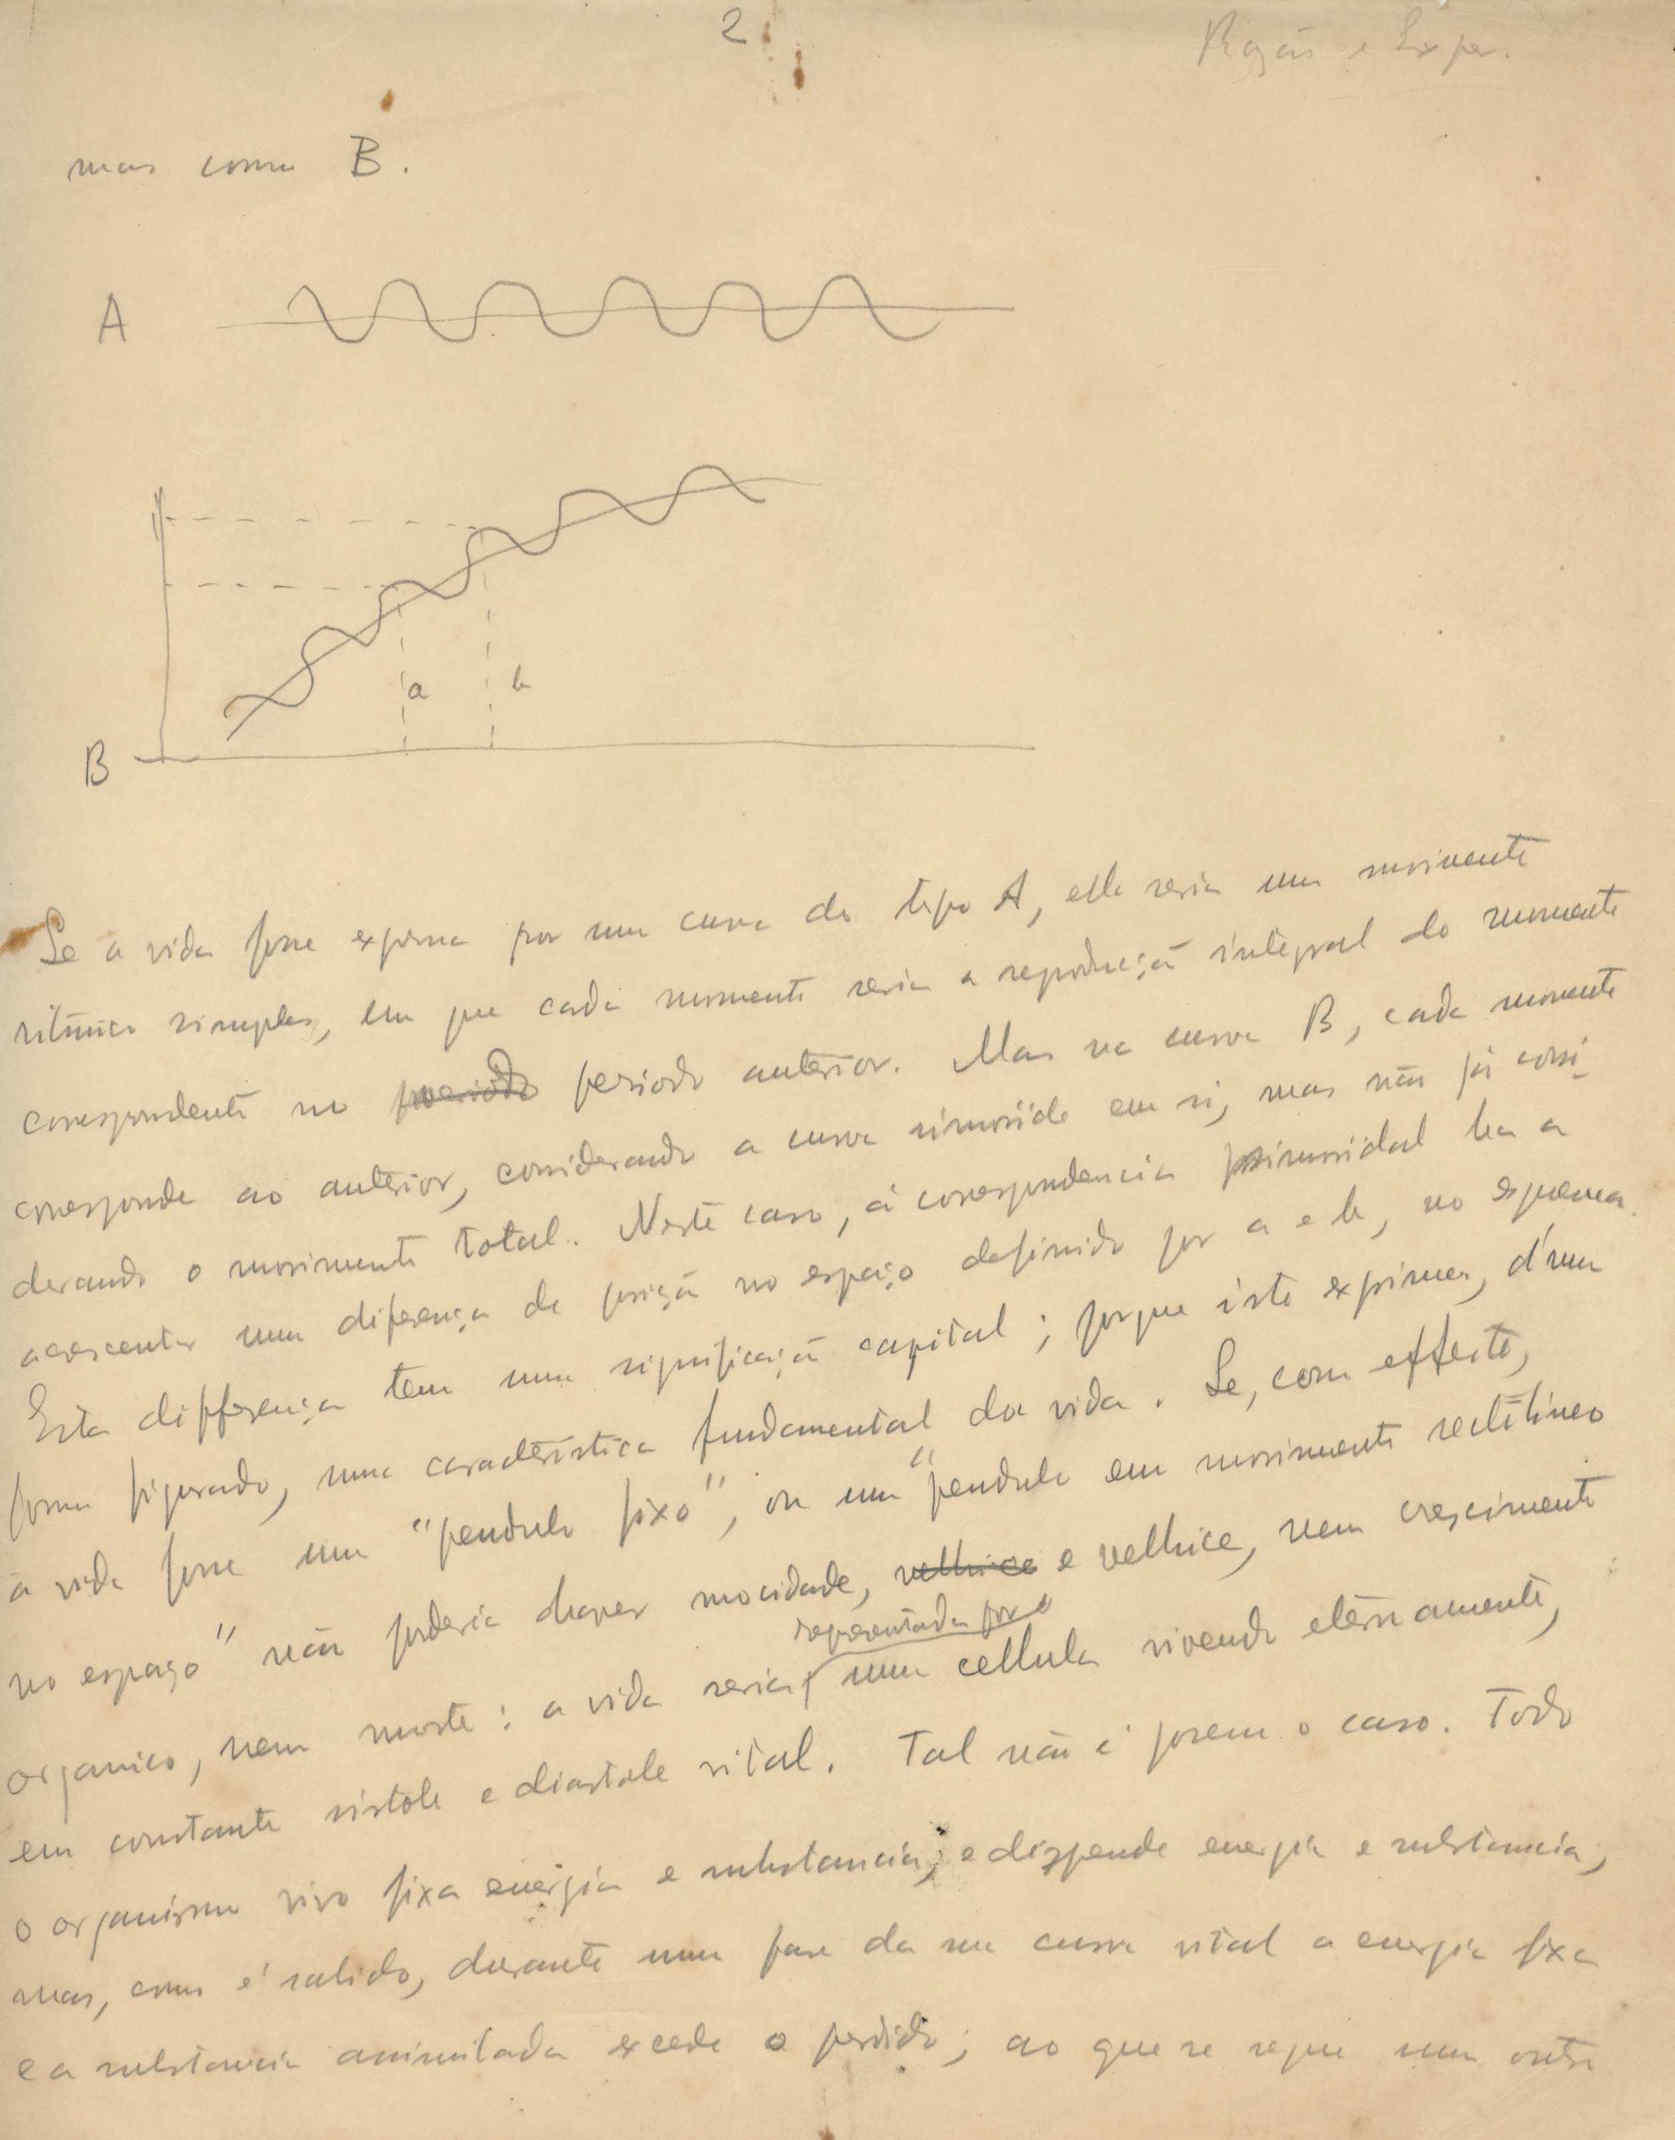 2
Razão e Exper.
mas como B.
A
a b
B
Se a vida fosse expressa por uma curva do typo A, ella seria um movimento
ritmico simples, em que cada momento seria a reprodução integral do momento
correspondente no periodo periodo anterior. Mas na curva B, cada momento
corresponde ao anterior, considerando a curva sinusoide em si, mas não já consi-
derando o movimento total. Neste caso, á correspondencia sinusoidal ha a
acrescentar uma diferença de posição no espaço definido por a e b, no esquema.
Esta differença tem uma significação capital; porque isto exprime, d'uma
forma figurada, uma caracteristica fundamental da vida. Se, com effeito,
a vida fosse um "pendulo fixo", ou um "pendulo em movimento rectilineo
no espaço" não poderia haver mocidade, velhice e velhice, nem crescimento
representada por
organico, nem morte: a vida seria uma cellula vivendo eternamente,
em constante sistole e diastole vital. Tal não é porem o caso. Todo
o organismo vivo fixa energia e substancia; e dispende energia e substancia;
mas, como é sabido, durante uma fase da sua curva vital a energia fixa
e a substancia assimilada excede o perdido; ao que se segue uma outra